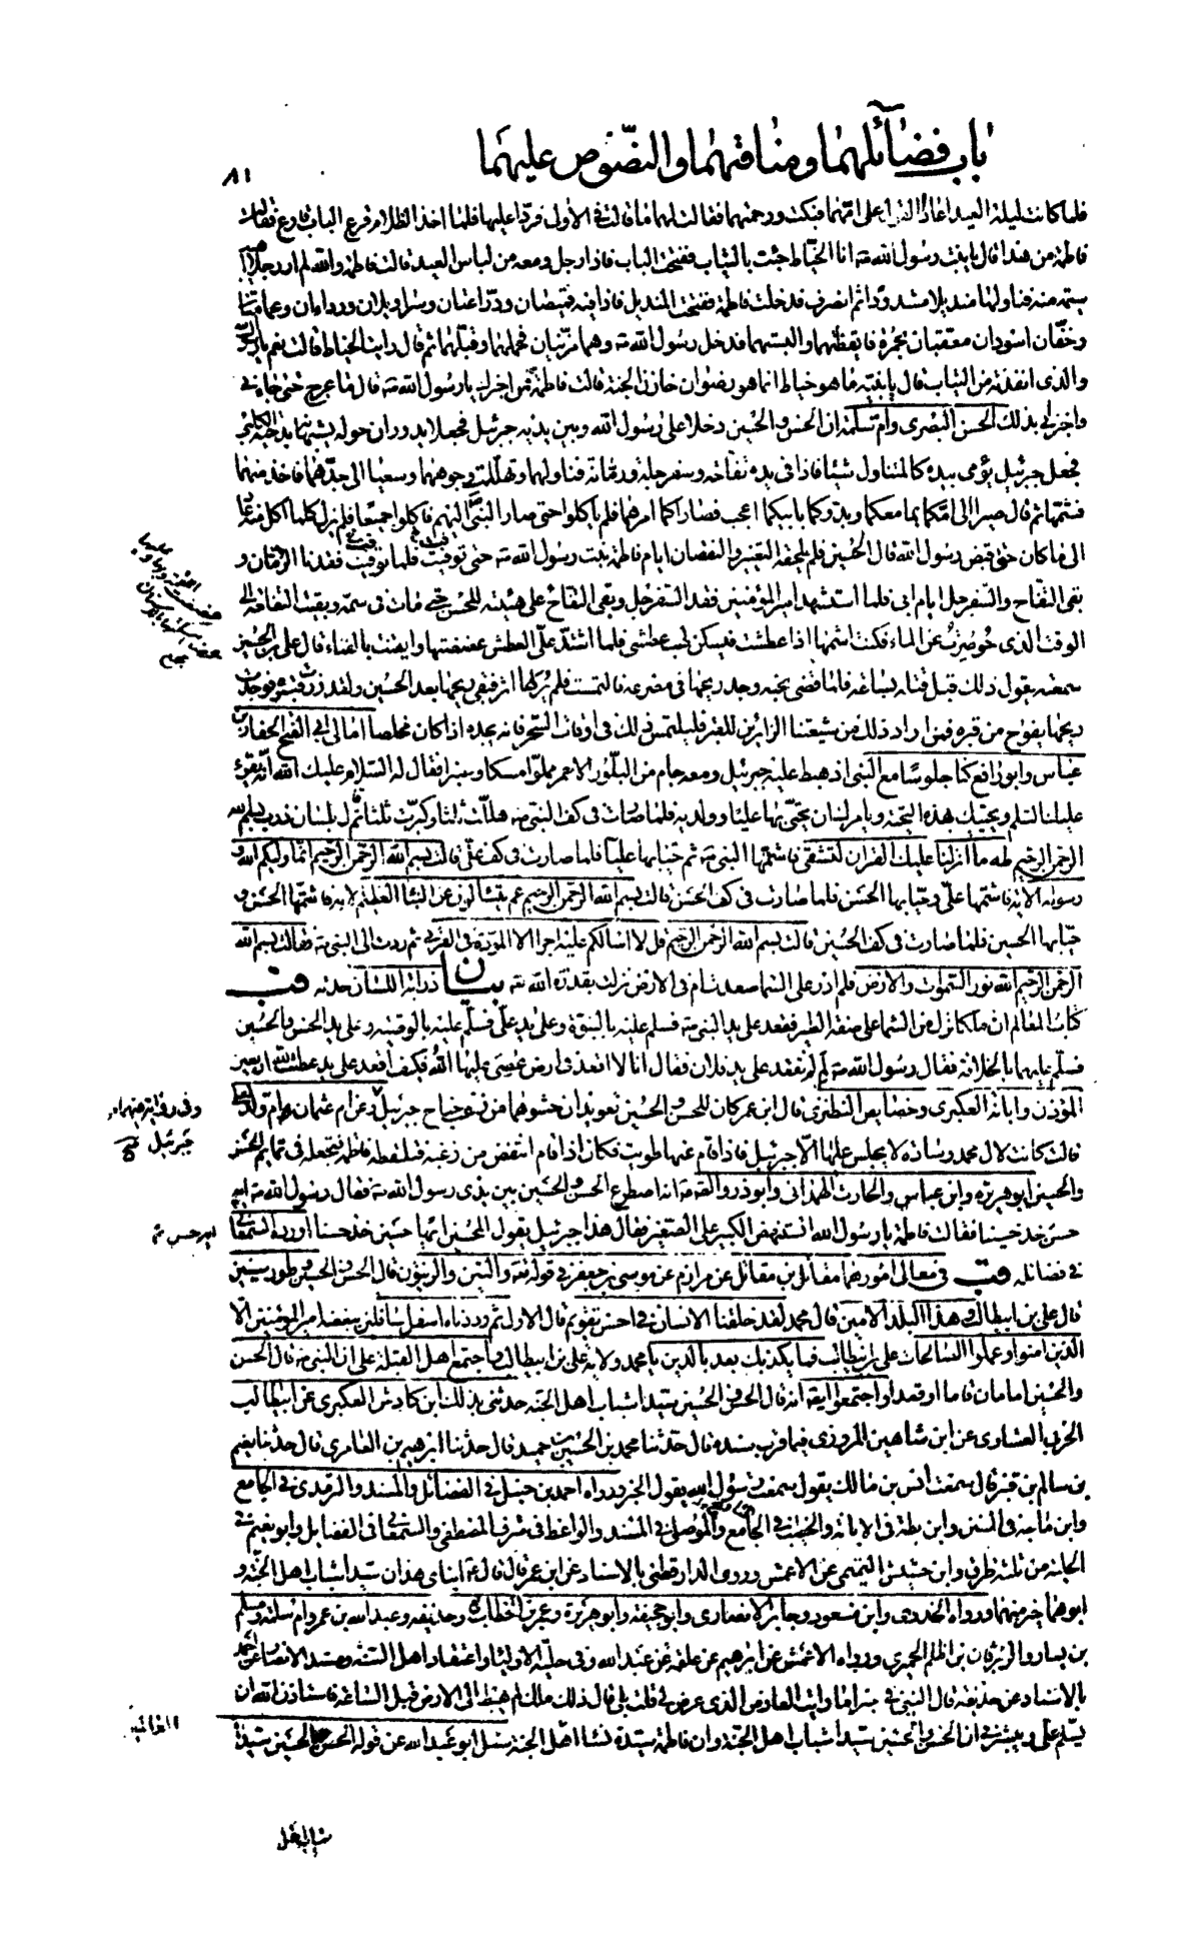 باب فضائلهما ومناقبهما والنصوص عليهما
٨١
فلما كانت ليلة العيد اعادا القول على امهما فبكت ورحمتهما فقالت لهما ما قالت في الاولى فردا عليها فلما اخذ الظلام قرع الباب قارع فقالت
فاطمة من هذا قال يا بنت رسول الله ص انا الخياط جئت بالثياب ففتحت الباب فاذا رجل ومعه من لباس العيد قالت فاطمة والله لم ار رجلا
شيمة منه فناولها منديلا مشدودا ثم انصرف فدخلت فاطمة ففتحت المنديل فاذا فيه قميصان ودراعتان وسراويلان ورداءان وعمامتان
وخفان اسودان معقبان بحمرة فايقظتهما والبستهما فدخل رسول الله ص وهما مزينان فحملهما وقبلهما ثم قال رايت الخياط قالت نعم يا رسول الله
والذي انفذته من الثياب قال يا بنية ما هو خياط انما هو رضوان خازن الجنة قالت فاطمة فمن اخبرك يا رسول الله ص قال ما عرج حتى جاءني
واخبرني بذلك الحسن البصري وام سلمة ان الحسن والحسين دخلا على رسول الله وبين يديه جبرئيل فجعلا يدوران حوله يشبهانه بدحية الكلبي
فجعل جبرئيل يؤمي بيده كالمتناول شيئا فاذا في يده تفاحة وسفرجلة ورمانة فناولهما وتهللت وجوههما وسعيا الى جدهما فاخذ منهما
فشمها ثم قال صيرا الى امكما بما معكما وبدؤكما بابيكما اعجب فصارا كما امرهما فلم ياكلوا حتى صار النبي اليهم فاكلوا جميعا فلم يزل كلما اكل منه عاد
الى ما كان حتى قبض رسول الله قال الحسين فلم يلحقه التغيير والنقصان ايام فاطمة بنت رسول الله ص حتى توفيت فلما توفيت فقدنا الرمان و
بقي التفاح والسفرجل ايام ابي فلما استشهد امير المؤمنين فقد السفرجل وبقي التفاح على هيئته للحسن حتى مات في سمه وبقيت التفاحة الى
الوقت الذي حوصرت عن الماء فكنت اشمها اذا عطشت فيسكن لهب عطشي فلما اشتد علي العطش عضضتها وايقنت بالفناء قال علي بن الحسين
سمعته يقول ذلك قبل قتله بساعة فلما قضى نحبه وجد ريحها في مصرعه فالتمست فلم ير لها اثر فبقي ريحها بعد الحسين ولقد زرت قبره فوجدت
ريحها يفوح من قبره فمن اراد ذلك من شيعتنا الزائرين للقبر فليلتمس ذلك في اوقات السحر فانه يجده اذا كان مخلصا امالي ابي الفتح الحفار ابن
عباس وابو رافع كنا جلوسا مع النبي اذ هبط عليه جبرئيل ومعه جام من البلور الاحمر مملوا مسكا وعنبرا فقال له السلام عليك الله يقرئ
عليك السلم ويحييك بهذه التحية ويامرك ان تحيي بها عليا وولديه فلما صارت في كف النبي ص هللت ثلثا وكبرت ثلثا ثم قالت بلسان ذرب بسم الله
الرحمن الرحيم طه ما انزلنا عليك القران لتشقى فاشتمها النبي ص ثم حيا بها عليا فلما صارت في كف علي قالت بسم الله الرحمن الرحيم انما وليكم الله و
رسوله الاية فاشتمها علي وحيا بها الحسن فلما صارت في كف الحسن قالت بسم الله الرحمن الرحيم عم يتسائلون عن النبا العظيم الاية فاشتمها الحسن و
حيا بها الحسين فلما صارت في كف الحسين قالت بسم الله الرحمن الرحيم قل لا اسالكم عليه اجرا الا المودة في القربى ثم ردت الى النبي ص فقالت بسم الله
الرحمن الرحيم الله نور السموات والارض فلم ادر على السما صعدت ام في الارض نزلت بقدرة الله تعه بيان ذرابة اللسان حدته قب
كتاب المعالم ان ملكا نزل من السما على صفة الطير فقعد على يد النبي ص فسلم عليه بالنبوة وعلى يد علي فسلم عليه بالوصية وعلى يد الحسن والحسين
فسلم عليهما بالخلافة فقال رسول الله ص لم لم تقعد على يد فلان فقال انا لا اقعد في ارض عصي عليها الله فكيف اقعد على يد عصت الله اربعين
المؤذن وابانة العكبري وخصايص النطنزي قال ابن عمر كان للحسن والحسين تعويذان حشوهما من زغب جناح جبرئيل وعن ام عثمان ام ولد لعلي
قالت كانت لال محمد وسادة لا يجلس عليها الا جبرئيل فاذا قام عنها طويت فكان اذا قام انتفض من زغبه فتلقطه فاطمة فتجعله في تمايم الحسن
والحسين ابو هريرة وابن عباس والحارث الهمداني وابو ذر والصادق ع انه اصطرع الحسن والحسين بين يدي رسول الله ص فقال رسول الله ص ايه
حسن خذ حسينا فقالت فاطمة يا رسول الله اتستنهض الكبير على الصغير فقال هذا جبرئيل يقول للحسين ايها حسين خذ حسنا اورده السمعاني
في فضائله قب في معالي امورهما مقاتل بن مقاتل عن مرازم عن موسى بن جعفر في قوله تعه والتين والزيتون قال الحسن والحسين وطور سينين
قال علي بن ابيطالب وهذا البلد الامين قال محمد لقد خلقنا الانسان في احسن تقويم قال الاول ثم رددناه اسفل سافلين ببغضه امير المؤمنين الا
الذين امنوا وعملوا الصالحات علي بن ابيطالب فما يكذبك بعد بالدين يا محمد ولاية علي بن ابيطالب واجتمع اهل القبلة على ان النبي ص قال الحسن
والحسين امامان قاما او قعدا واجتمعوا ايضا انه قال الحسن والحسين سيدا شباب اهل الجنة حدثني بذلك ابن كادش العكبري عن ابي طالب
الحربي العشاري عن ابن شاهين المروزي فيما قرب سنده قال حدثنا محمد بن الحسين بن حميد قال حدثنا ابرهيم بن العامري قال حدثنا نعيم
بن سالم بن قنبر قال سمعت انس بن مالك يقول سمعت رسول الله يقول الخبر ورواه احمد بن حنبل في الفضائل والمسند والترمذي في الجامع
وابن ماجة في السنن وابن بطة في الابانة والخطيب في الجامع والموصلي في المسند والواعظ في شرف المصطفى والسمعاني في الفضايل وابو نعيم في
الحلية من ثلثة طرق وابن حشيش التميمي عن الاعمش وروى الدارقطني بالاسناد عن ابن عمر قال قال ص ابناي هذان سيدا شباب اهل الجنة و
ابوهما خير منهما ورواه الخدري وابن مسعود وجابر الانصاري وابو جحيفة وابو هريرة وعمر بن الخطاب وحذيفة وعبد الله بن عمر وام سلمة ومسلم
بن يسار والزبرقان بن اظلم الحميري ورواه الاعمش عن ابرهيم عن علقمة عن عبد الله وفي حلية الاولياء واعتقاد اهل السنة ومسند الانصار عن احمد
بالاسناد عن حذيفة قال النبي في خبر اما رايت العارض الذي عرض لي قلت بلى قال ذلك ملك لم يهبط الى الارض قبل الساعة فاستاذن الله ان
يسلم علي ويبشرني ان الحسن والحسين سيدا شباب اهل الجنة وان فاطمة سيدة نسا اهل الجنة سئل ابو عبد الله عن قوله الحسن والحسين سيدا
وفي رواية فيهما من
جبرئيل
شباب اهل